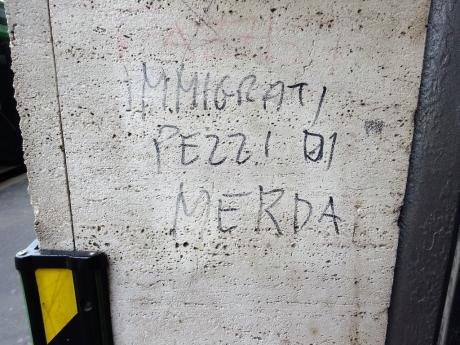 IMMIGRATI
PEZZI DI
MERDA